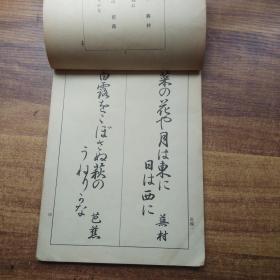 菜の花や月は東に
日は西に
蕪村
白露をこぼさぬ萩の
うねりかな
芭蕉
蕪村